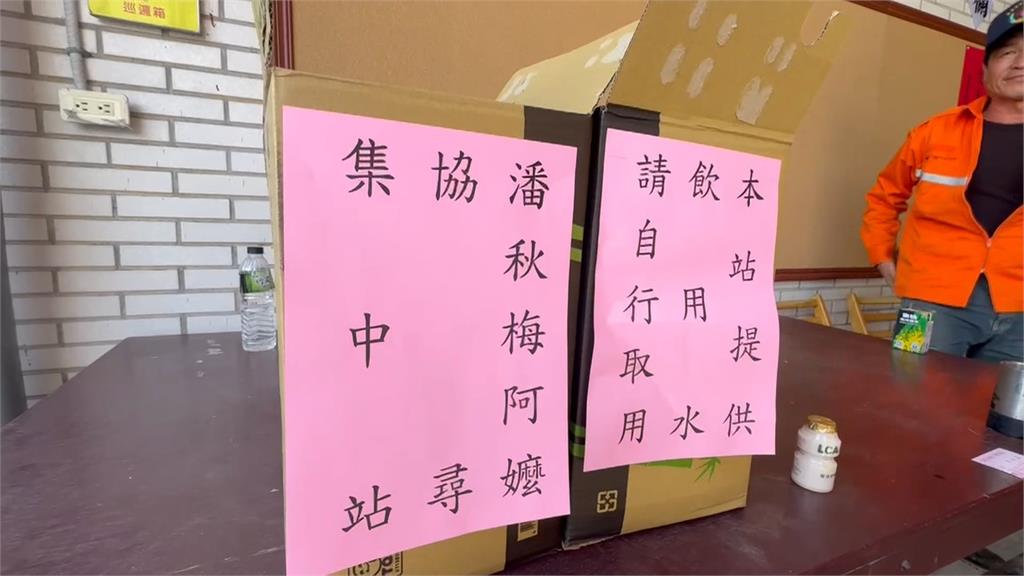 巡邏箱
潘秋梅阿嬤
協尋
集中站
本站提供
飲用水
請自行取用
LCA